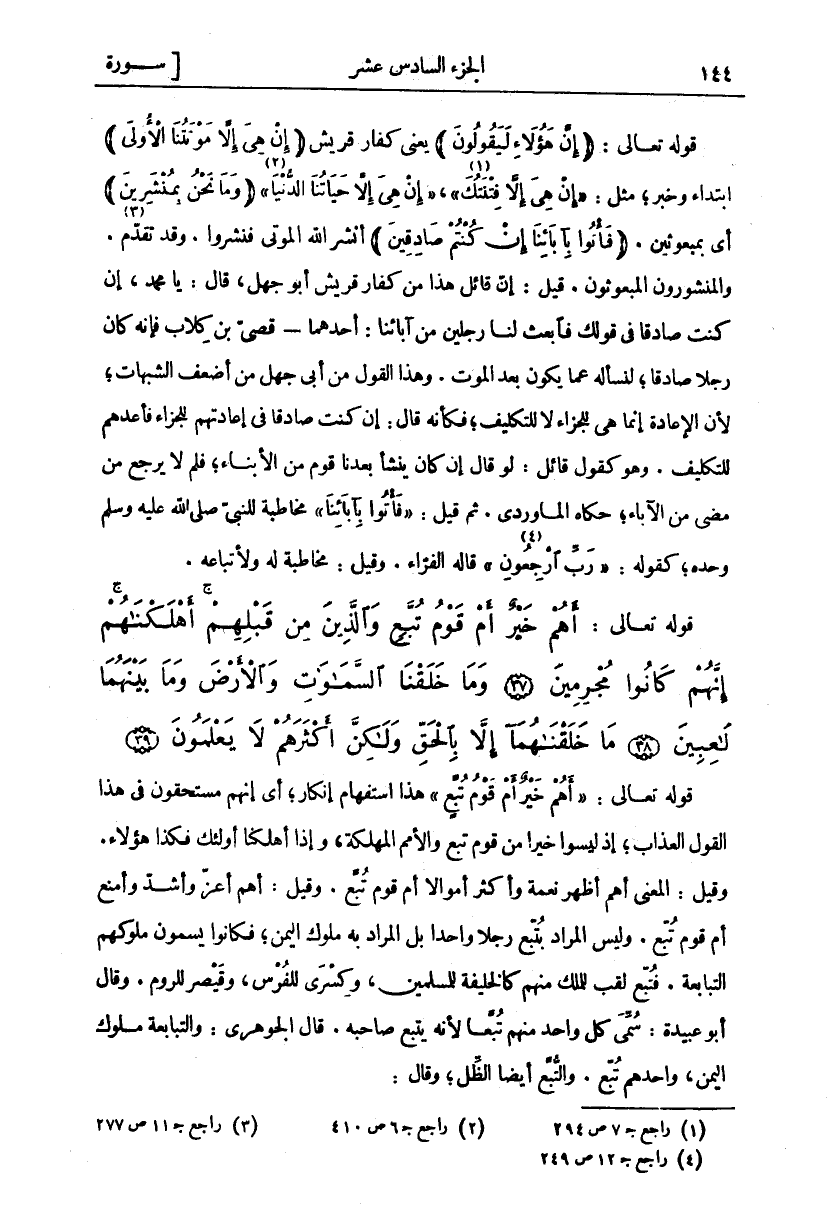 ١٤٤ الجزء السادس عشر [ سـورة
قوله تعـالى : ﴿ إِنَّ هَؤُلَاءِ لَيَقُولُونَ ﴾ يعنى كفار قريش ﴿ إِنْ هِىَ إِلَّا مَوْتَتُنَا الْأُولَى ﴾
ابتداء وخبر؛ مثل : «إِنْ هِىَ إِلَّا فِتْنَتُكَ (١)»، «إِنْ هِىَ إِلَّا حَيَاتُنَا الدُّنْيَا (٢)» ﴿ وَمَا نَحْنُ بِمُنْشَرِينَ ﴾
أى بمبعوثين . ﴿ فَأْتُوا بِآبَائِنَا إِنْ كُنْتُمْ صَادِقِينَ ﴾ أنشر الله الموتى فنشروا . وقد تقدّم (٣) .
والمنشورون المبعوثون . قيل : إنّ قائل هذا من كفار قريش أبو جهل، قال : يا محمد ، إن
كنت صادقا فى قولك فٱبعث لنـا رجلين من آبائنا : أحدهما — قصىّ بن كلاب فإنه كان
رجلا صادقا؛ لنسأله عما يكون بعد الموت . وهذا القول من أبى جهل من أضعف الشبهات؛
لأن الإعادة إنما هى للجزاء لا للتكليف؛ فكأنه قال: إن كنت صادقا فى إعادتهم للجزاء فأعدهم
للتكليف . وهو كقول قائل : لو قال إن كان ينشأ بعدنا قوم من الأبنـاء؛ فلم لا يرجع من
مضى من الآباء؛ حكاه المـاوردى . ثم قيل : «فَأْتُوا بِآبَائِنَا» مخاطبة للنبىّ صلى الله عليه وسلم
وحده؛ كقوله : « رَبِّ ٱرْجِعُونِ (٤)» قاله الفرّاء . وقيل : مخاطبة له ولأتباعه .
قوله تعـالى : أَهُمْ خَيْرٌ أَمْ قَوْمُ تُبَّعٍ وَٱلَّذِينَ مِن قَبْلِهِمْ ۚ أَهْلَكْنَٰهُمْ ۚ
إِنَّهُمْ كَانُوا مُجْرِمِينَ ﴿٣٧﴾ وَمَا خَلَقْنَا ٱلسَّمَٰوَٰتِ وَٱلْأَرْضَ وَمَا بَيْنَهُمَا
لَٰعِبِينَ ﴿٣٨﴾ مَا خَلَقْنَٰهُمَآ إِلَّا بِٱلْحَقِّ وَلَٰكِنَّ أَكْثَرَهُمْ لَا يَعْلَمُونَ ﴿٣٩﴾
قوله تعـالى : « أَهُمْ خَيْرٌ أَمْ قَوْمُ تُبَّعٍ » هذا استفهام إنكار؛ أى إنهم مستحقون فى هذا
القول العذاب؛ إذ ليسوا خيرا من قوم تبع والأمم المهلكة، وإذا أهلكنا أولئك فكذا هؤلاء.
وقيل : المعنى أهم أظهر نعمة وأكثر أموالا أم قوم تُبَّع . وقيل : أهم أعزّ وأشدّ وأمنع
أم قوم تُبَّع . وليس المراد بتُبَّع رجلا واحدا بل المراد به ملوك اليمن؛ فكانوا يسمون ملوكهم
التبابعة . فتُبَّع لقب للملك منهم كالخليفة للمسلمين، وكِسْرَى للفُرْس، وقَيْصر للروم . وقال
أبو عبيدة : سُمِّىَ كل واحد منهم تُبَّعـا لأنه يتبع صاحبه . قال الجوهرى : والتبابعة مـلوك
اليمن، واحدهم تُبَّع . والتُّبَّع أيضا الظّل؛ وقال :
(١) راجع جـ ٧ ص ٢٩٤ (٢) راجع جـ ٦ ص ٤١٠ (٣) راجع جـ ١١ ص ٢٧٧
(٤) راجع جـ ١٢ ص ٢٤٩